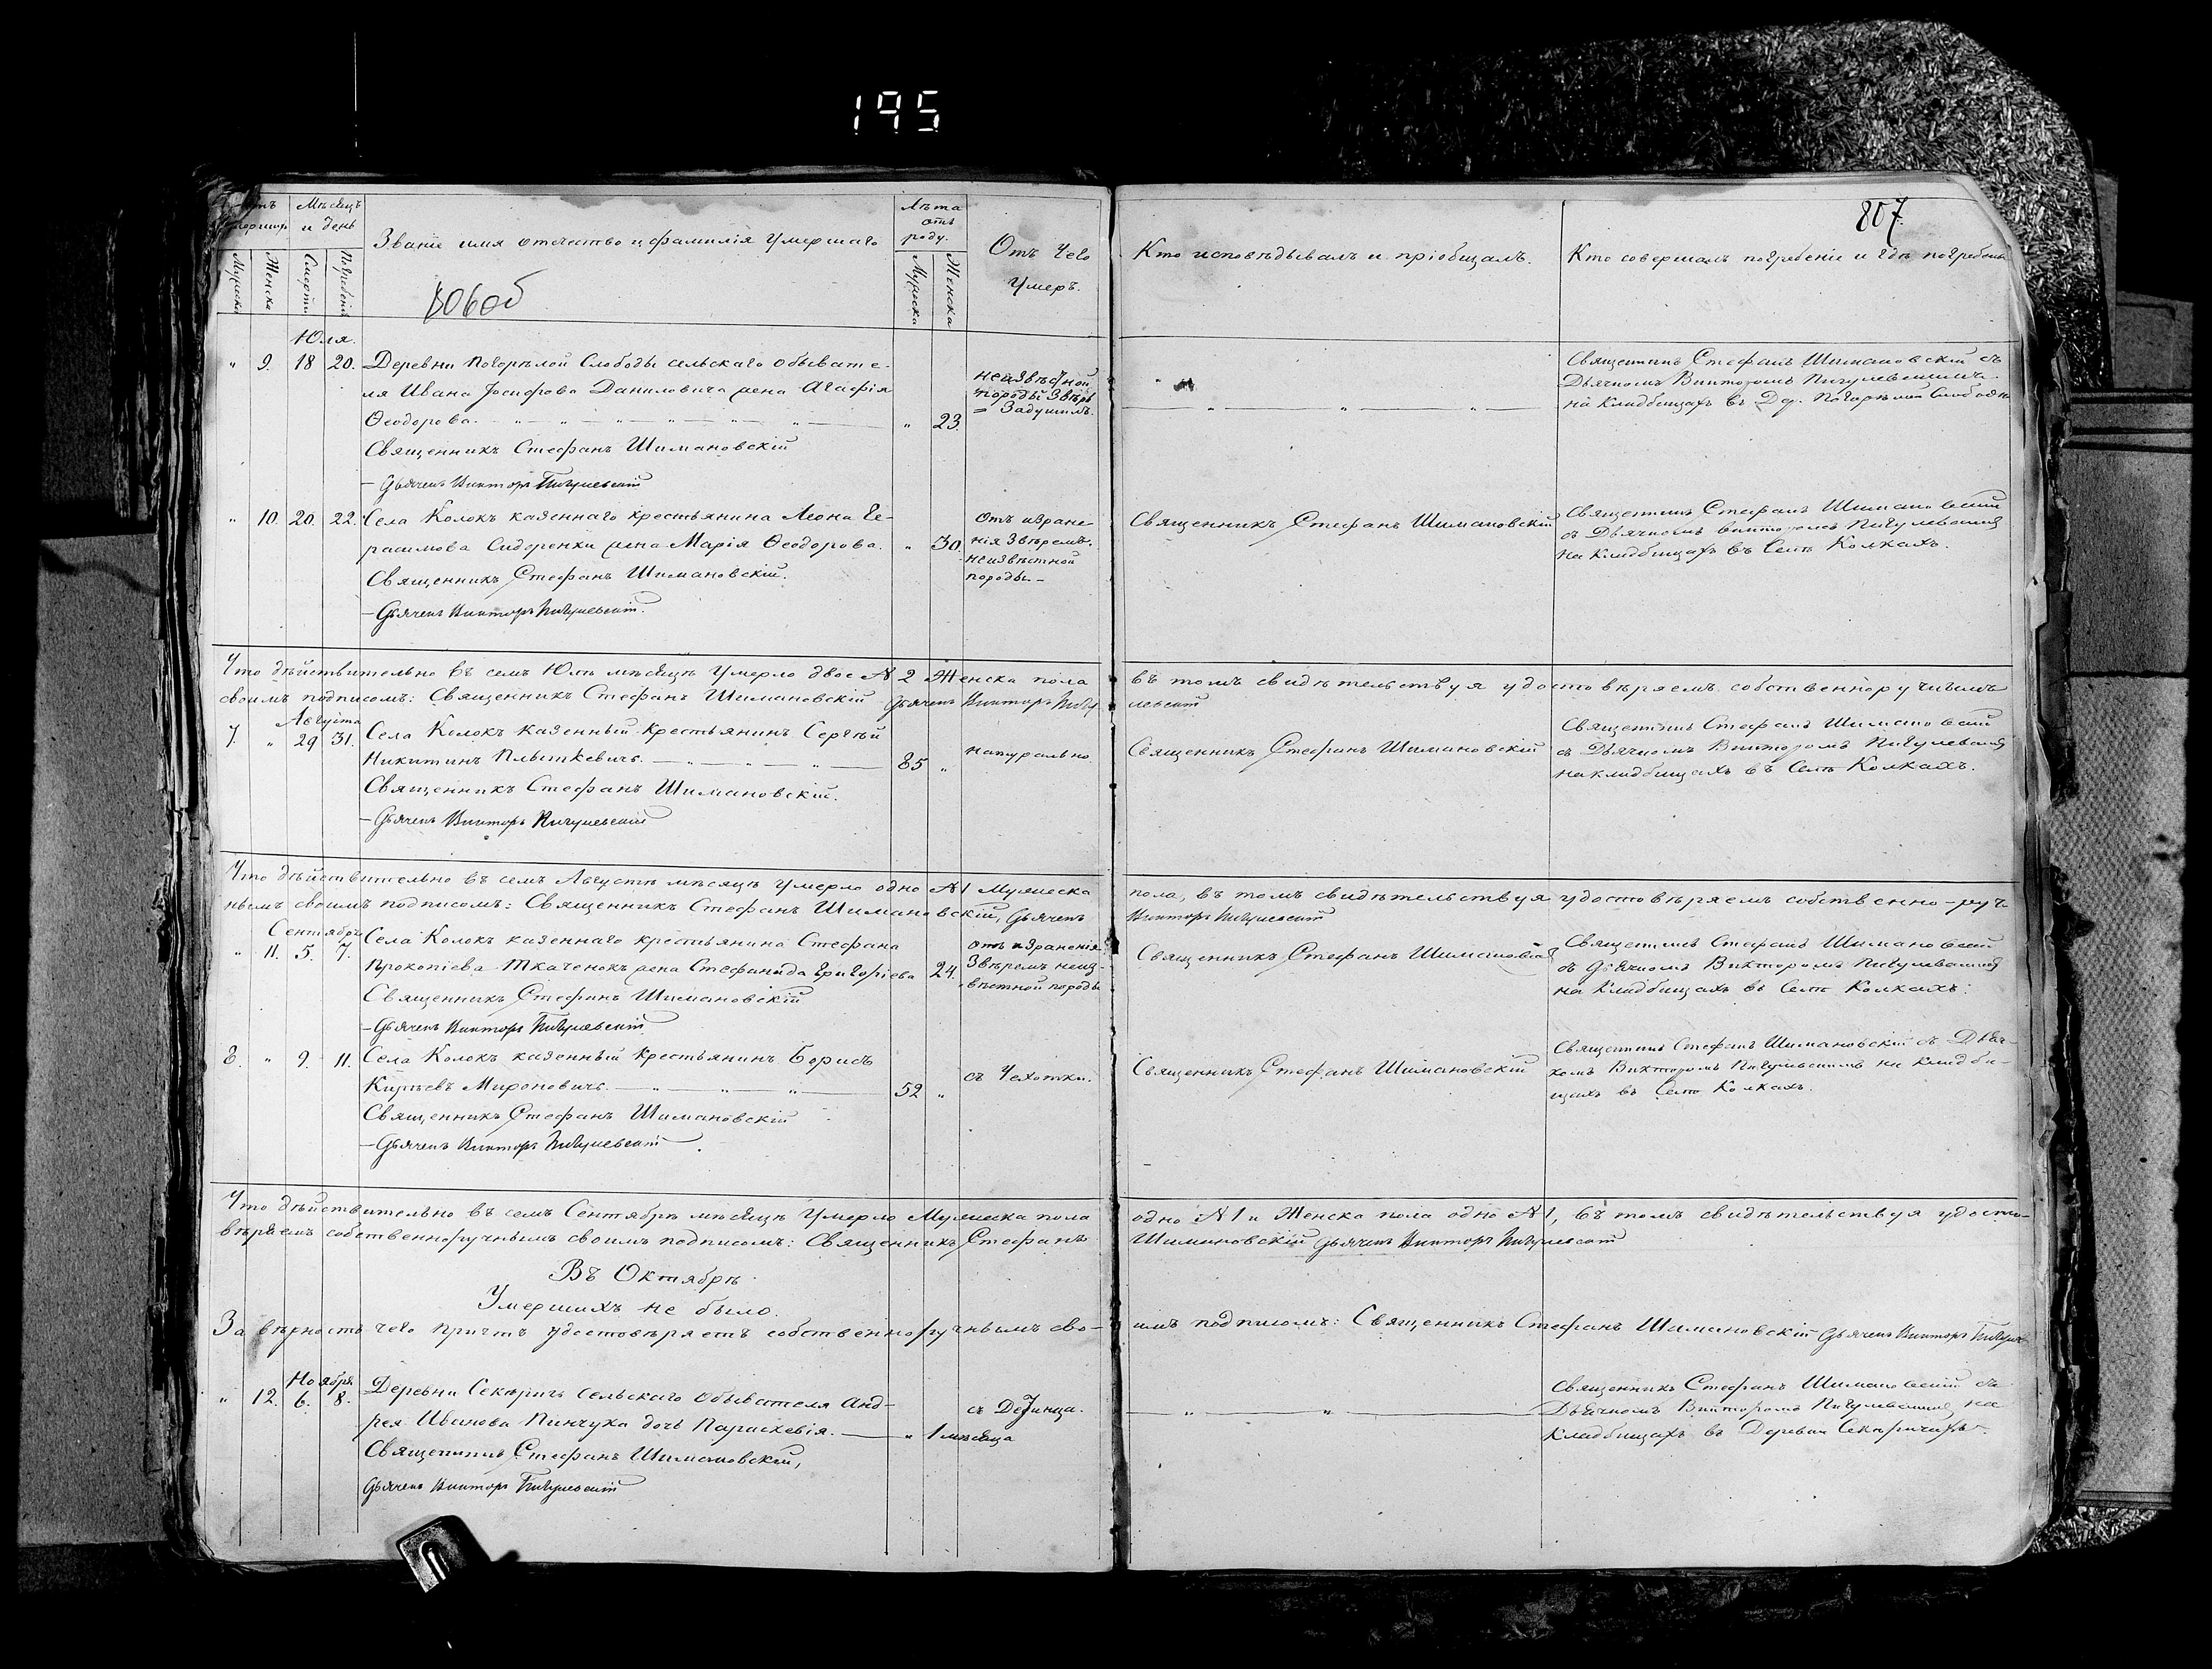 195
807.
Счетъ умершихъ
Мѣсяцъ и день
Званіе имя отечество и фамилія умершаго
Лѣта отъ роду.
Отъ чего умеръ.
Кто исповѣдывалъ и пріобщалъ.
Кто совершалъ погребеніе и гдѣ погребены
Мужеска
Женска
Смерти
Погребенія
Мужеска
Женска
806об
Юля.
" 9. 18 20. Деревни Погорѣлой Слободы сельскаго обывате-
ля Ивана Іосифова Даниловича жена Агафія
Ѳеодорова. " 23.
неизвѣстной
породы звѣрь
= Задушилъ.
Священникъ Стефанъ Шимановскій съ
Дьячкомъ Викторомъ Пигулевскимъ.
на кладбищахъ въ Де. Погорѣлой Слободѣ
Священникъ Стефанъ Шимановскій
– Дьячекъ Викторъ Пигулевскій
" 10. 20. 22. Села Колокъ казеннаго крестьянина Леона Ге-
расимова Сидоренки жена Марія Ѳеодорова. " 30.
отъ изране-
нія звѣремъ,
неизвѣстной
породы.–
Священникъ Стефанъ Шимановскій
Священникъ Стефанъ Шимановскій
съ Дьячкомъ Викторомъ Пигулевскимъ
на кладбищахъ въ Селѣ Колкахъ.
Священникъ Стефанъ Шимановскій.
– Дьячекъ Викторъ Пигулевскій.
Что дѣйствительно въ семъ Юлѣ мѣсяцѣ умерло двое № 2 Женска пола въ томъ свидѣтельствуя удостовѣряемъ собственноручнымъ
своимъ подписомъ: Священникъ Стефанъ Шимановскій Дьячекъ Викторъ Пигу левскій
Августа
7. " 29 31. Села Колокъ казенный крестьянинъ Сергѣй
Никитинъ Плыткевичъ. 85 "
натурально
Священникъ Стефанъ Шимановскій
Священникъ Стефанъ Шимановскій
съ Дьячкомъ Викторомъ Пигулевскимъ
на кладбищахъ въ Селѣ Колкахъ.
Священникъ Стефанъ Шимановскій.
– Дьячекъ Викторъ Пигулевскій
Что дѣйствительно въ семъ Августѣ мѣсяцѣ умерло одно № 1 Мужеска пола, въ томъ свидѣтельствуя удостовѣряемъ собственно-руч
нымъ своимъ подписомъ: Священникъ Стефанъ Шимановскій, Дьячекъ Викторъ Пигулевскій
Сентябрь
" 11. 5. 7. Села Колокъ казеннаго крестьянина Стефана
Прокопіева Ткаченокъ жена Стефанида Григоріева 24.
отъ израненія
звѣремъ неиз-
вѣстной породы
Священникъ Стефанъ Шимановскій
Священникъ Стефанъ Шимановскій
съ Дьячкомъ Викторомъ Пигулевскимъ
на кладбищахъ въ Селѣ Колкахъ.
Священникъ Стефанъ Шимановскій
– Дьячекъ Викторъ Пигулевскій
8. " 9. 11. Села Колокъ казенный крестьянинъ Борисъ
Мироновичъ. 52 "
съ чахотки.
Священникъ Стефанъ Шимановскій
Священникъ Стефанъ Шимановскій съ Дьяч-
комъ Викторомъ Пигулевскимъ на кладби-
щахъ въ Селѣ Колкахъ.
Священникъ Стефанъ Шимановскій
– Дьячекъ Викторъ Пигулевскій
Что дѣйствительно въ семъ Сентябрѣ мѣсяцѣ умерло Мужеска пола одно № 1 и Женска пола одно № 1, въ томъ свидѣтельствуя удосто-
вѣряемъ собственноручнымъ своимъ подписомъ: Священникъ Стефанъ Шимановскій Дьячекъ Викторъ Пигулевскій
Въ Октябрѣ
Умершихъ не было.
За вѣрность чего причтъ удостовѣряетъ собственноручнымъ сво- имъ подписомъ: Священникъ Стефанъ Шимановскій Дьячекъ Викторъ Пигулев
Ноября
" 12. 6. 8. Деревни Секиричъ сельскаго обывателя Анд-
рея Иванова Пинчука дочь Параскевія. " 1 мѣсяца
съ
Священникъ Стефанъ Шимановскій съ
Дьячкомъ Викторомъ Пигулевскимъ на
кладбищахъ въ Деревни Секиричахъ.
Священникъ Стефанъ Шимановскій,
Дьячекъ Викторъ Пигулевскій